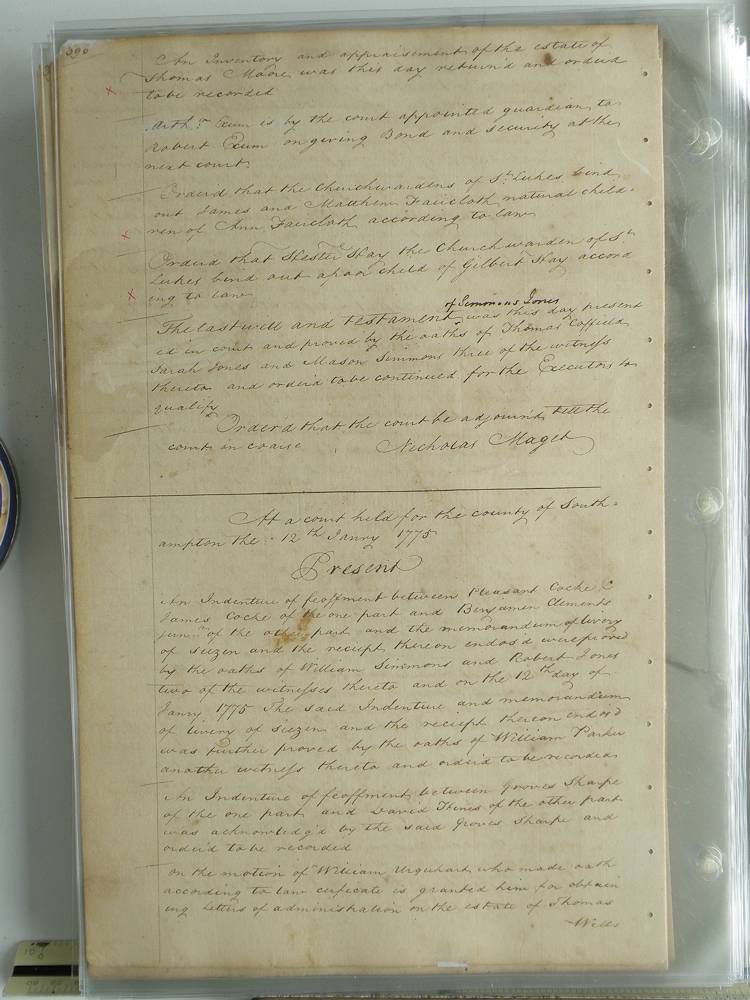 390
An Inventory and appraisement of the estate of
Thomas Moore was this day return'd and orderd
to be recorded
Arth.r Exum is by the court appointed guardian to
Robert Exum on giving Bond and security at the
next court.
Orderd that the Churchwardens of St. Lukes bind
out James and Matthew Faircloth natural child-
ren of Ann Faircloth according to law
Orderd that Hester Hay the Churchwarden of St.
Lukes bind out a poor child of Gilbert Hay accord
ing to law
of Simonous Jones
The last will and testament was this day present
ed in court and proved by the oaths of Thomas Coffield
Sarah Jones and Mason Simmons three of the witness
thereto and orderd to be continued for the Executors to
qualify
Order'd that the court be adjournd till the
court in course
Nicholas Maget
At a court held for the county of South-
ampton the 12th Janry 1775
Present
An Indenture of feoffment between Pleasant Cocke &
James Cocke of the one part and Benjamin Clements
junr. of the other part and the memorandum of livery
of seizen and the reciept thereon endos'd were proved
by the oaths of William Simmons and Robert Jones
two of the witnesses thereto and on the 12th day of
Janry 1775 The said Indenture and memorandum
of livery of siezen and the reciept thereon endos'd
was further proved by the oaths of William Parker
another witness thereto and order'd to be recorded
An Indenture of feoffment between Groves Sharpe
of the one part and David Hines of the other part
was acknowledg'd by the said Groves Sharpe and
order'd to be recorded
on the motion of William Urquhart who made oath
according to law cirficate is granted him for obtain
ing Letters of administration on the estate of Thomas
Wells